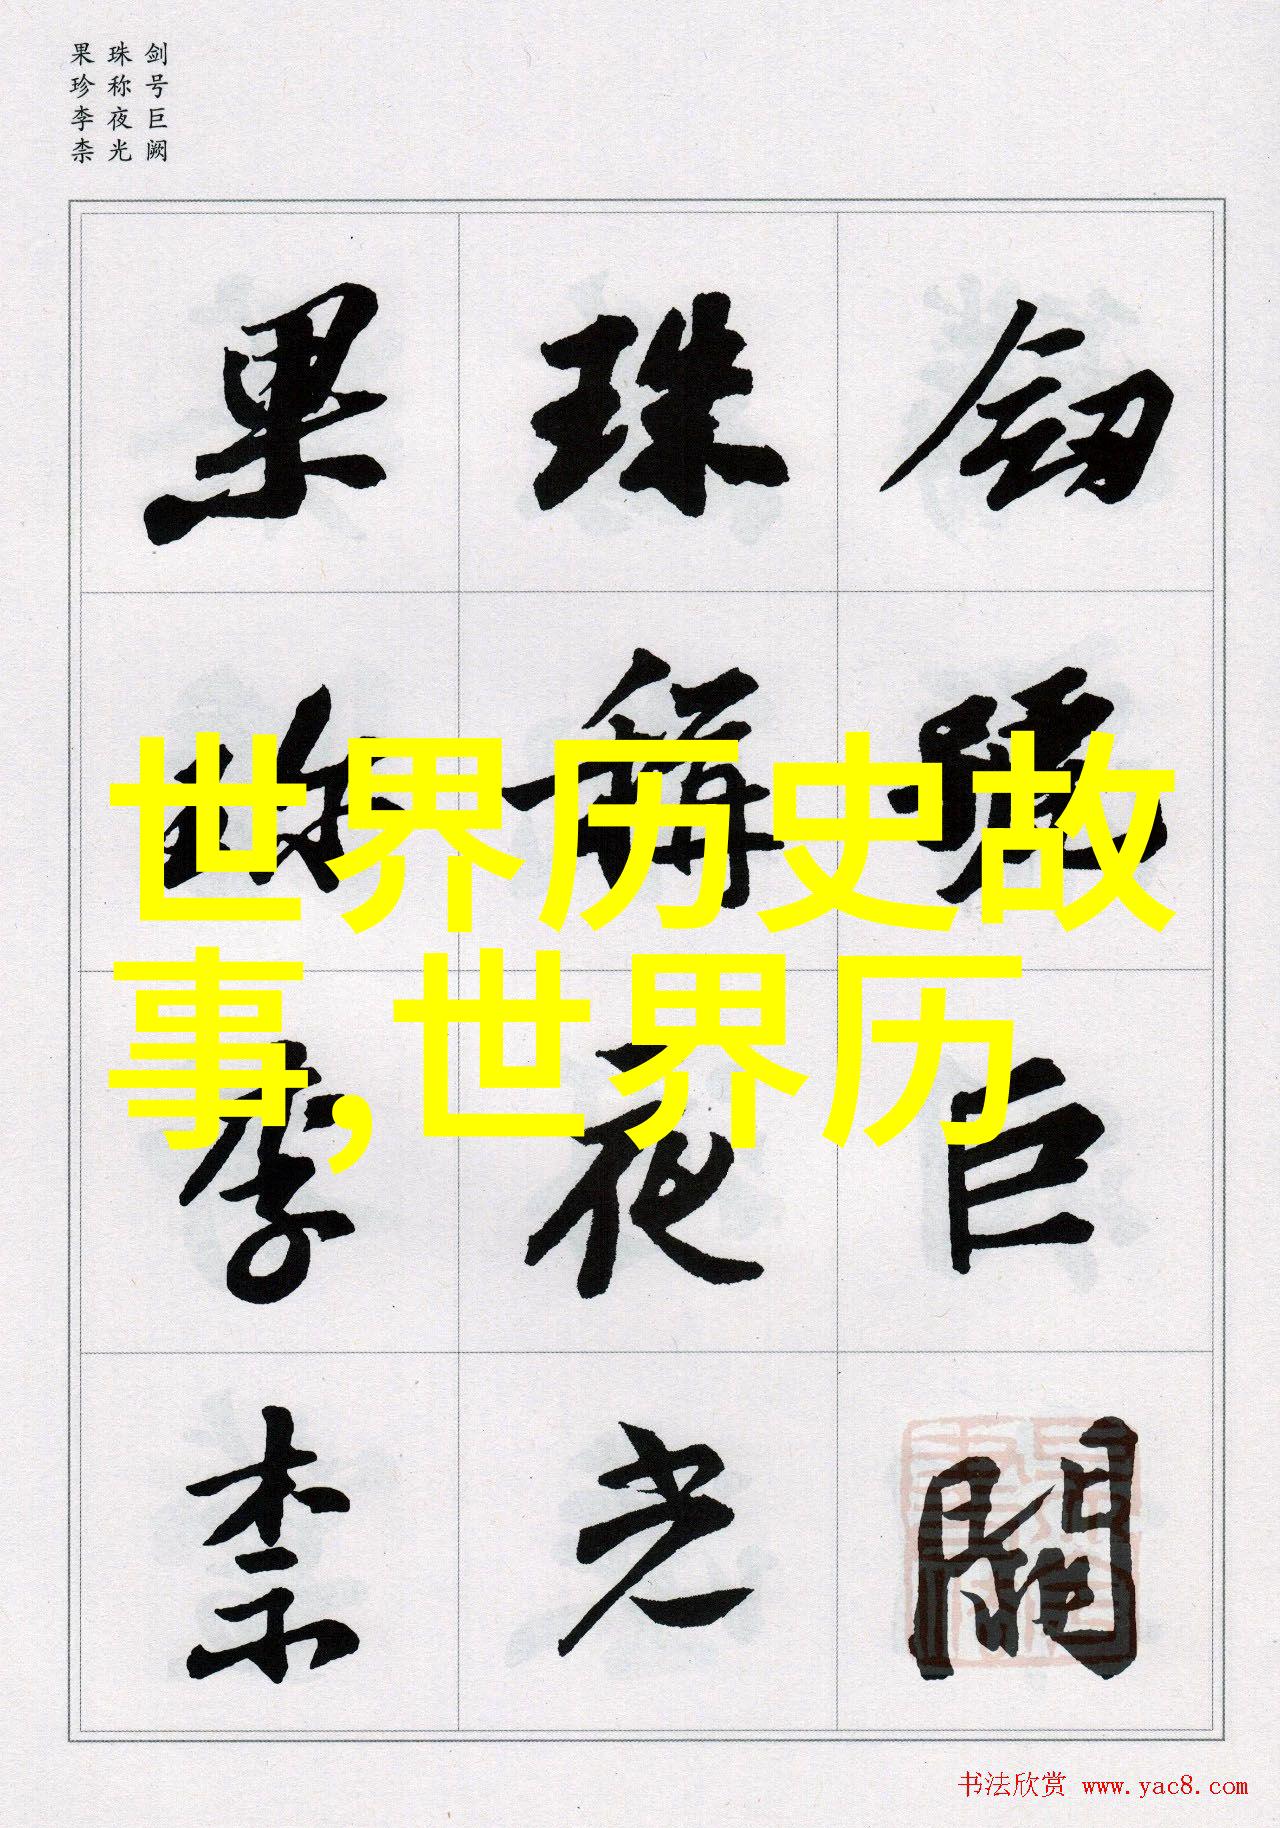 剑号巨阙
珠称夜光
果珍李柰
剑号巨阙
珠称夜光
果珍李柰
世界历史故
事,世界历
书法欣赏 www.yac8.com